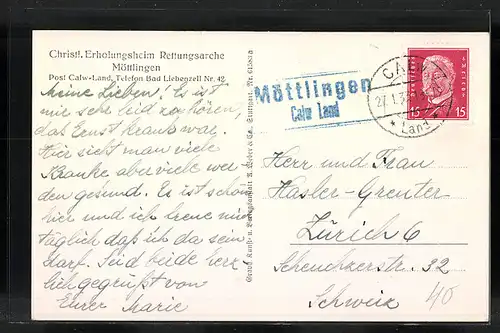 Christl. Erholungsheim Rettungsarche
Möttlingen
Post Calw-Land, Telefon Bad Liebenzell Nr. 42
Meine Lieben! Es ist
mir sehr leid zu hören,
das Ernst Krank war.
Hier sieht man viele
Kranke aber viele wer
den gesund. Es ist schön
hier und ich freue mich
täglich daß ich da sein
darf. Seid beide herz
lich gegrüßt von
Eurer Marie
Möttlingen
Calw Land
CALW
27.1.3
* Land
15 15
Herr und Frau
Hasler-Greuter
Zürich 6
Scheuchzerstr. 32
Schweiz
40